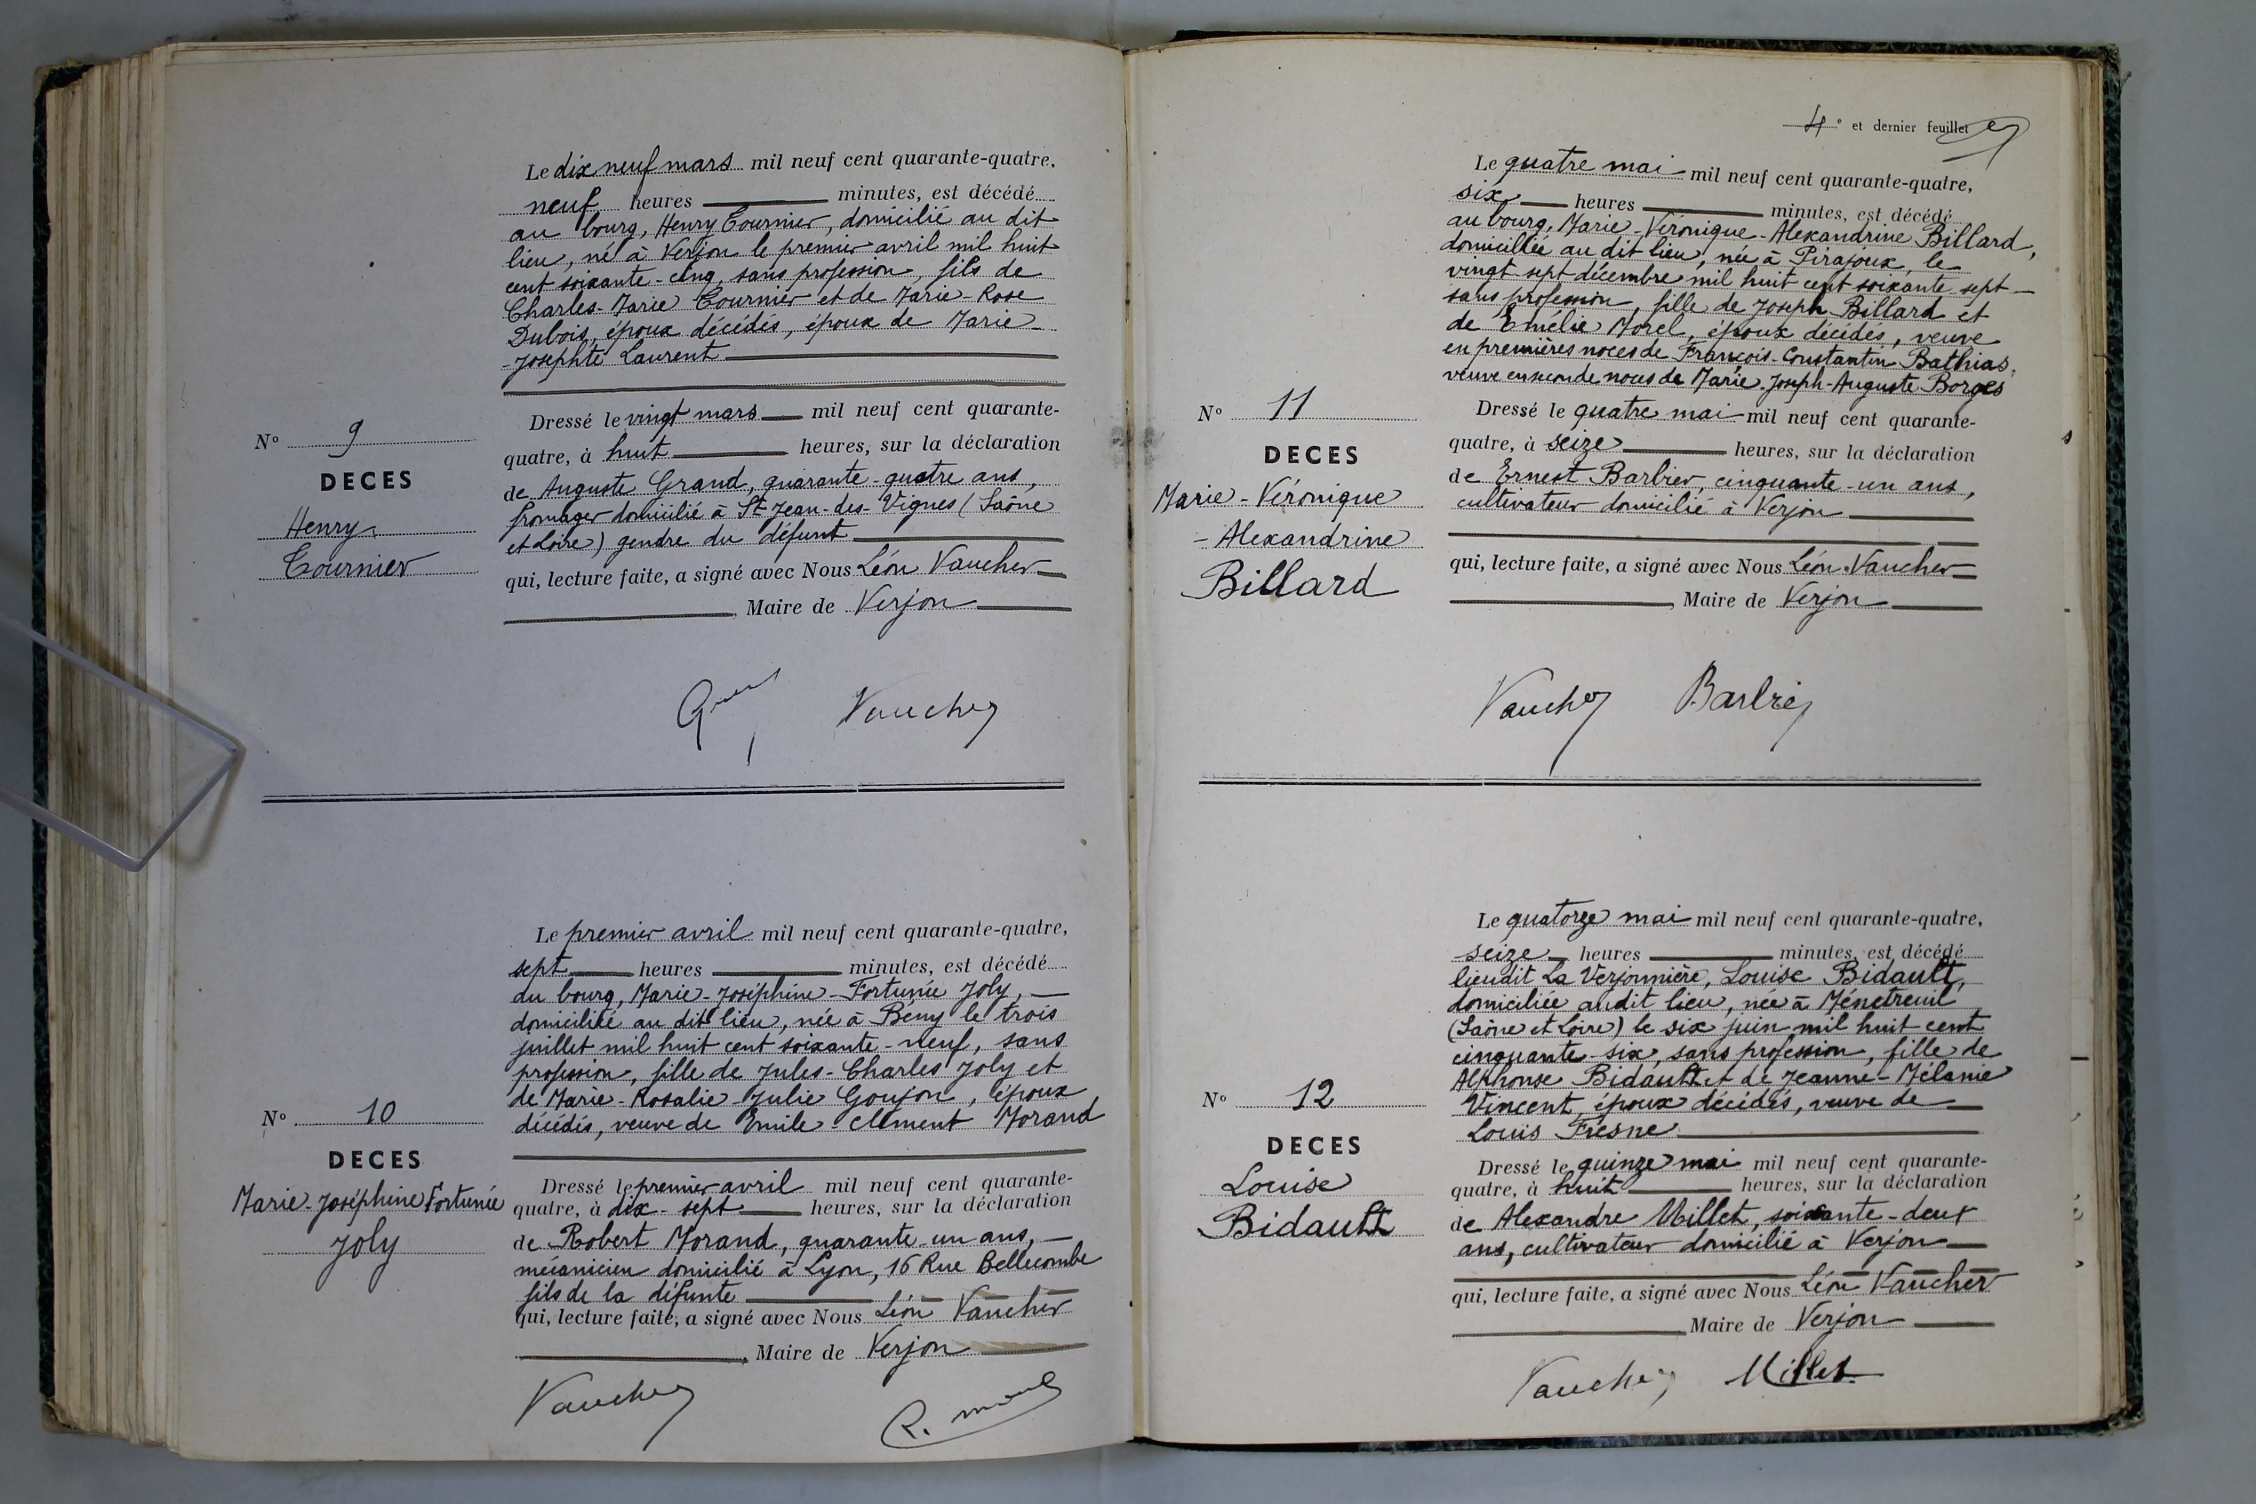 Le dix neuf mars mil neuf cent quarante-quatre,
neuf heures minutes, est décédé
au bourg, Henry Cournier, domicilié au dit
lieu, né à Verjon le premier avril mil huit
cent soixante-cinq, sans profession, fils de
Charles-Marie Cournier et de Marie-Rose
Dubois, époux décédés, époux de Marie-
-Josephte Laurent
Dressé le vingt mars mil neuf cent quarante-
quatre, à huit heures, sur la déclaration
de Auguste Grand, quarante-quatre ans,
fromager domicilié à St Jean-des-Vignes (Saône
et Loire) gendre du défunt
qui, lecture faite, a signé avec Nous Léon Vaucher
, Maire de Verjon
N° 9
DECES
Henry
Cournier
Vaucher
Le premier avril mil neuf cent quarante-quatre,
sept heures minutes, est décédé
du bourg, Marie-Joséphine-Fortunée Joly,
domiciliée au dit lieu, née à Bény le trois
juillet mil huit cent soixante-neuf, sans
profession, fille de Jules-Charles Joly et
de Marie-Rosalie-Julie Goujon, époux
décédés, veuve de Emile-Clément Morand
Dressé le premier avril mil neuf cent quarante-
quatre, à dix-sept heures, sur la déclaration
de Robert Morand, quarante-un ans,
mécanicien domicilié à Lyon, 16 Rue Bellecombe
fils de la défunte
qui, lecture faite, a signé avec Nous Léon Vaucher
, Maire de Verjon
N° 10
DECES
Marie-Joséphine Fortunée
Joly
Vaucher
4e et dernier feuillet
Le quatre mai mil neuf cent quarante-quatre,
six heures minutes, est décédé
au bourg, Marie-Véronique-Alexandrine Billard,
domiciliée au dit lieu, née à Pirajoux, le
vingt sept décembre mil huit cent soixante sept
sans profession, fille de Joseph Billard et
de Emélie Morel, époux décédés, veuve
en premières noces de François-Constantin Bathias,
veuve en seconde noces de Marie-Joseph-Auguste Borges
Dressé le quatre mai mil neuf cent quarante-
quatre, à seize heures, sur la déclaration
de Ernest Barbier, cinquante-un ans,
cultivateur domicilié à Verjon
qui, lecture faite, a signé avec Nous Léon Vaucher
, Maire de Verjon
N° 11
DECES
Marie-Véronique
-Alexandrine
Billard
Vaucher Barbier
Le quatorze mai mil neuf cent quarante-quatre,
seize heures minutes, est décédé
lieudit La Verjonnière, Louise Bidault,
domiciliée audit lieu, née à Ménetreuil
(Saône et Loire) le six juin mil huit cent
cinquante-six, sans profession, fille de
Alphonse Bidault et de Jeanne-Mélanie
Vincent, époux décédés, veuve de
Louis Fresne
Dressé le quinze mai mil neuf cent quarante-
quatre, à huit heures, sur la déclaration
de Alexandre Millet, soixante-deux
ans, cultivateur domicilié à Verjon
qui, lecture faite, a signé avec Nous Léon Vaucher
Maire de Verjon
N° 12
DECES
Louise
Bidault
Vaucher Millet